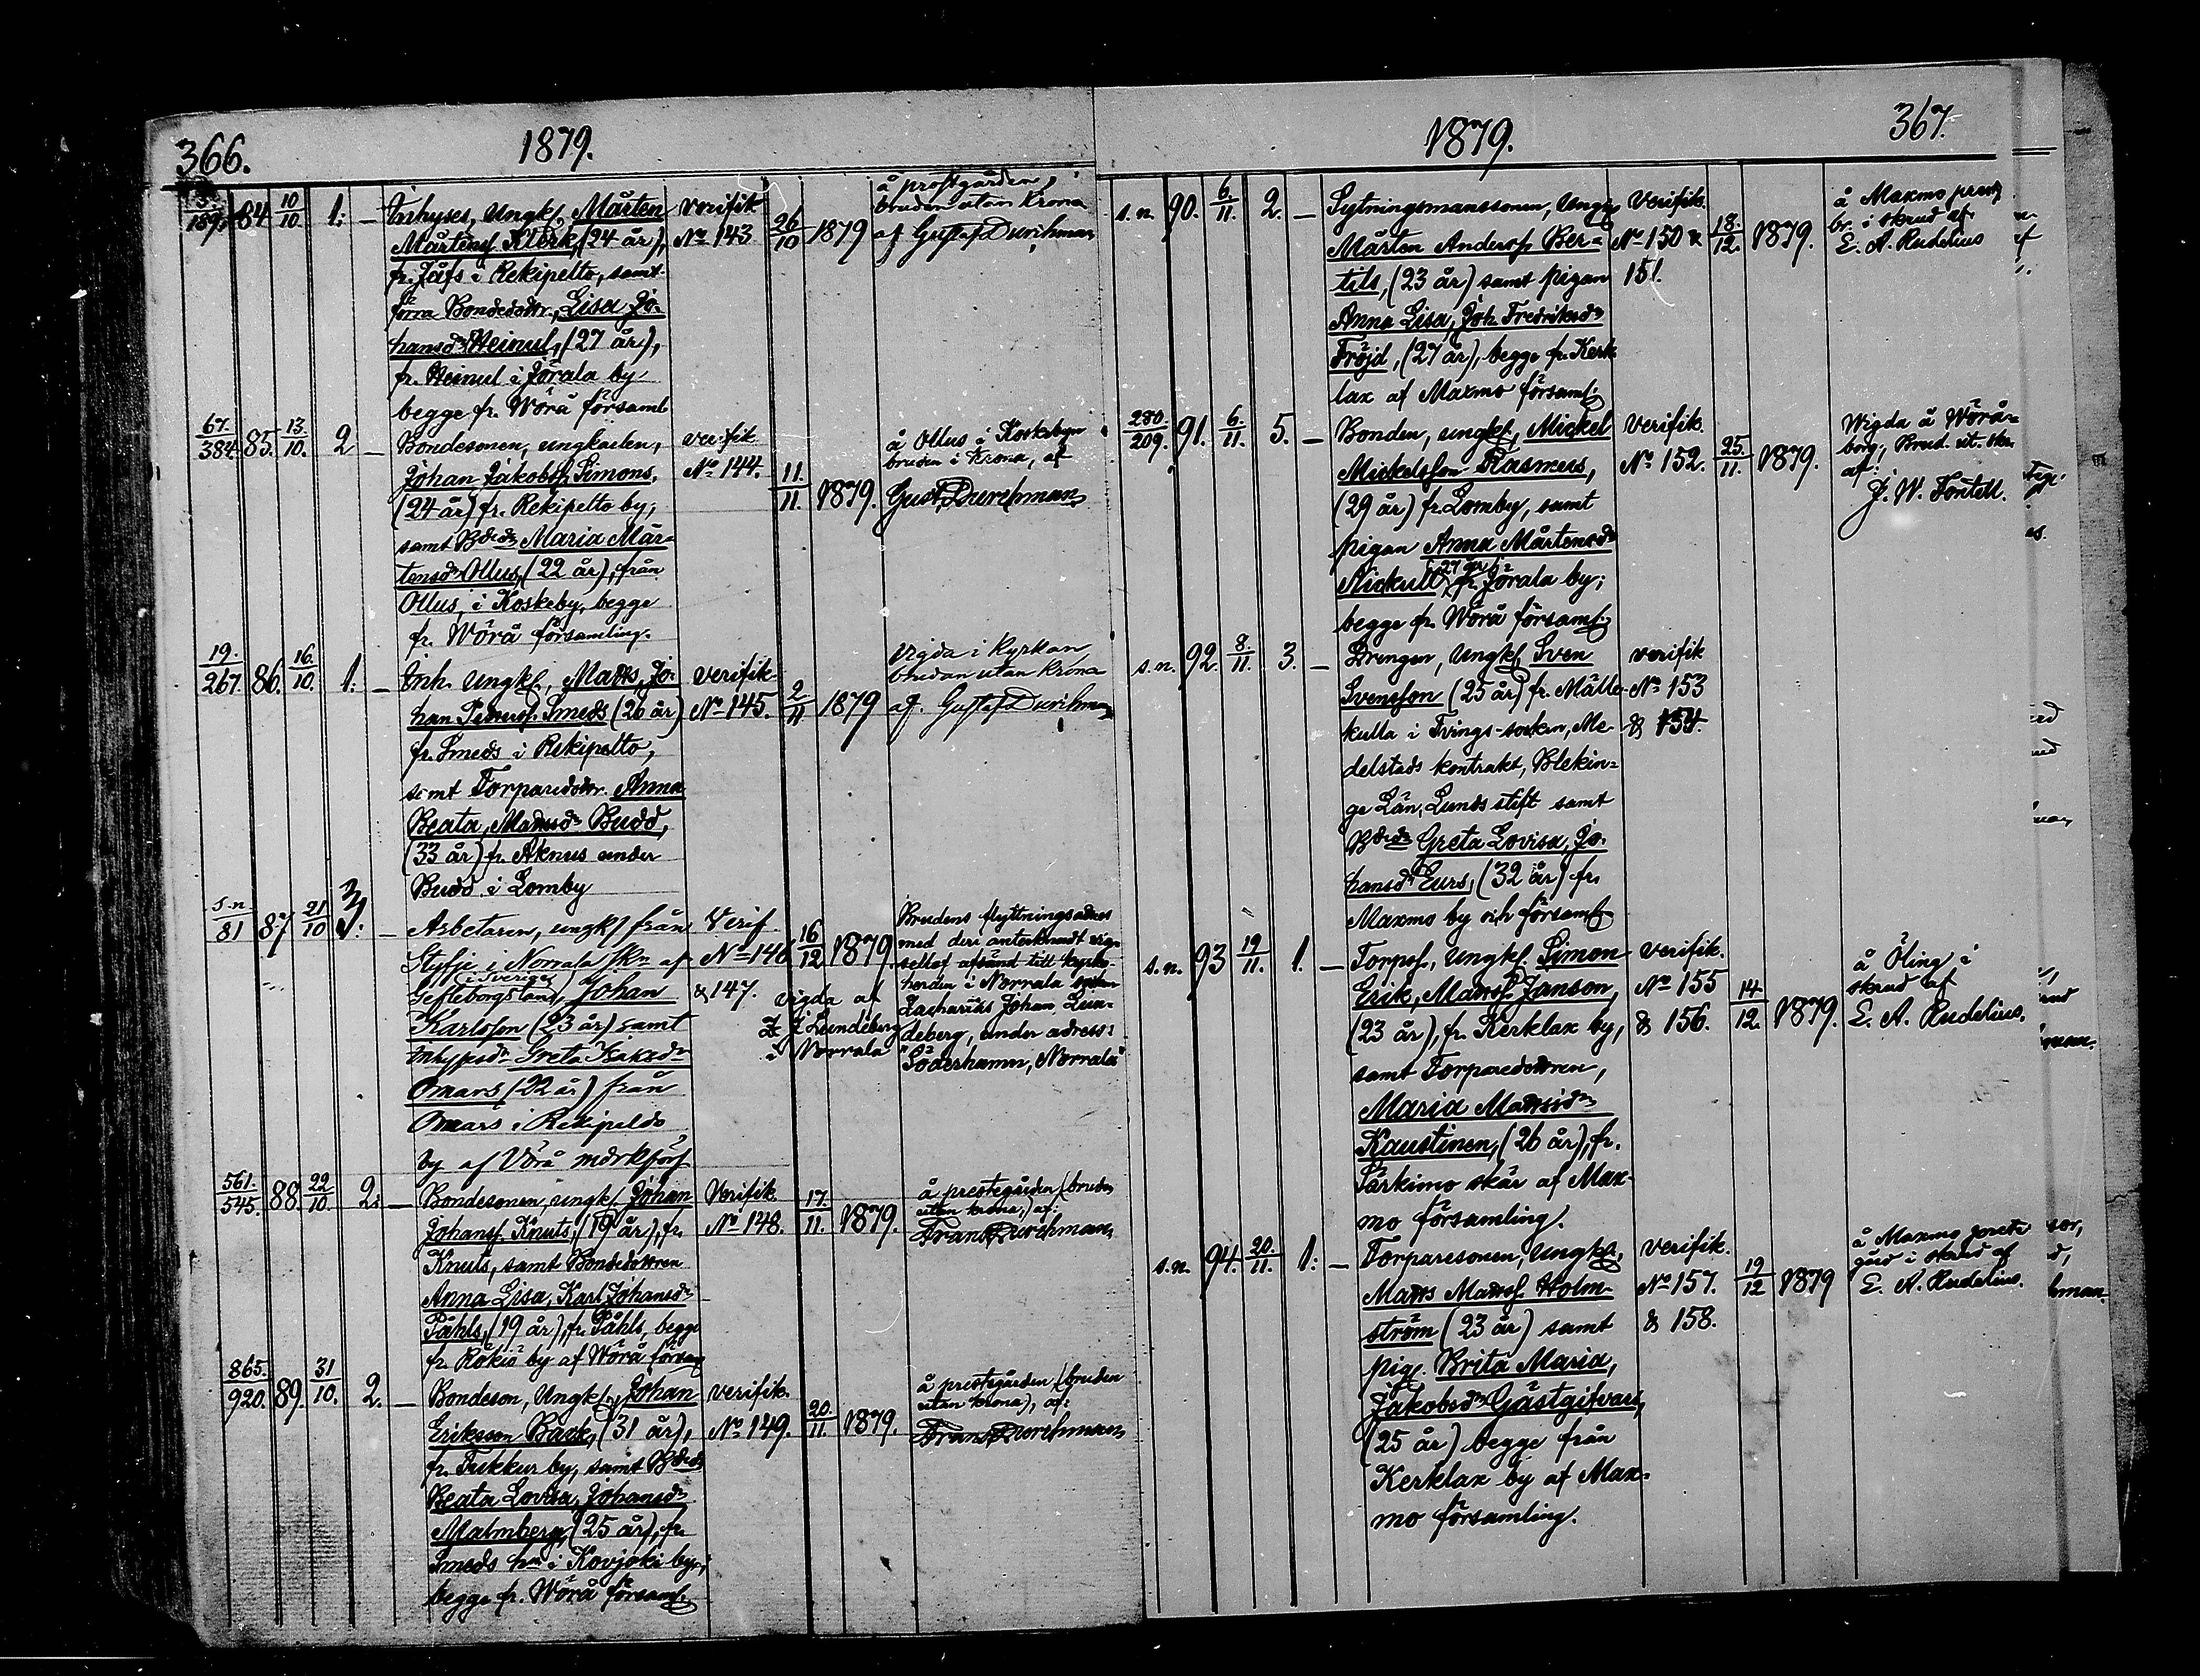 366.
1879.
189. 84 10/10. 1: — Inhyses, Ungk., Mårten
Mårtenss. Klerk, (24 år),
fr. Jåfs i Rekipelto, samt
förra Bondedottr., Lisa Jo-
hansdr Heinul, (27 år),
fr. Heinul i Jörala by
begge fr. Wörå församl.
Verifik
No 143
26/10 1879
å prostgården,
bruden utan Krona
af Gustaf Durchman
67./384. 85. 13./10. 2 — Bondesonen, ungkarlen,
Johan Jakobss. Simons,
(24 år) fr. Rekipelto by,
samt Bdedr Maria Mår-
tensdr Ollus, (22 år), från
Ollus, i Koskeby, begge
fr. Wörå församling.
verifik
No 144.
11./11. 1879.
å Ollus i Koskebyn
bruden i Krona, af
Gust. Durchman
19./267. 86. 16./10. 1: — Inh. Ungk., Matts, Jo-
han Petterss. Smeds (26 år)
fr. Smeds i Rekipelto,
samt Torparedottr. Anna
Beata, Mattsdr Budd,
(33 år) fr. Aknus under
Budd i Lomby
verifik
No 145.
2/11 1879
Vigda i Kyrkan
bruden utan Krona
af. Gustaf Durchman
s.n./81 87 21/10 3: — Arbetaren, ungk. från
Styfje i Norrala skn af
Gefleborgs län (i Sverige), Johan
Karlsson (23 år) samt
Inhypsdr Greta Isaksdr
Omars (22 år) från
Omars i Rekipeldo
by af Vörå mdrkförs.
Verif.
No 146
& 147.
16/12 1879.
vigda af
Z. J. Lundeberg
i Norrala
Brudens flyttningsadress
med deri antecknadt vig-
selbref afsänd till kyrko-
herden i Norrala
Zacharias Johan Lun-
deberg, under adress:
"Söderhamn, Norrala"
561./545. 88. 22/10. 2: — Bondesonen, ungk. Johan
Johanss. Knuts, (19 år), fr.
Knuts, samt Bondedottren
Anna Lisa, Karl Johansdr
Påhls, (19 år), fr. Påhls, begge
fr. Rökiö by af Wörå försam.
Verifik
No 148.
17./11. 1879.
å prestegården (bruden
utan krona,) af:
Frans Durchman,
865./920. 89. 31/10. 2. — Bondeson, Ungk., Johan
Eriksson Back, (31 år),
fr. Tukkur by, samt Bdedr
Beata Lovisa, Johansdr
Malmberg, (25 år), fr.
Smeds hmn i Kovjoki by,
begge fr. Wörå församl.
verifik.
No 149.
20./11. 1879.
å prestegården (bruden
utan krona), af:
Frans Durchman,
1879.
367.
s.n. 90. 6./11. 2. — Sytningsmanssonen, Ungk.
Mårten Anderss. Ber-
tils, (23 år) samt pigan
Anna Lisa, Joh. Fredriksdr
Fröjd, (27 år), begge fr. Kerk-
lax af Maxmo församl.
Verifik.
No 150 &
151.
18./12. 1879.
å Maxmo prestg.
br. i skrud af
E. A. Rudelius
280./209. 91. 6./11. 5. — Bonden, ungk., Mickel
Mickelsson Rasmus,
(29 år) fr. Lomby, samt
pigan Anna Mårtensdr
Nickull (27 år), fr. Jörala by;
begge fr. Wörå församl.
Verifik.
No 152.
25./11. 1879.
Wigda å Wörå-
borg, Brud. ut. skr.
af:
J. W. Fontell.
s.n. 92. 8./11. 3. — Drengen, Ungk. Sven
Svensson (25 år) fr. Mälle-
kulla i Tvings-socken, Me-
delstads kontrakt, Blekin-
ge Län, Lunds stift samt
Bdedr Greta Lovisa, Jo-
hansdr Eurs, (32 år) fr.
Maxmo by och församl.
verifik
No 153
& 154.
s.n. 93 19/11. 1. — Torpss., Ungk. Simon
Erik, Mattss. Janson,
(23 år), fr. Kerklax by,
samt Torparedottren,
Maria Mattsdr
Kaustinen, (26 år), fr.
Särkimo skär af Max-
mo församling.
verifik.
No 155
& 156.
14./12. 1879.
å Öling i
skrud af
E. A. Rudelius.
s.n. 94. 20./11. 1: — Torparesonen, Ungk.,
Matts Mattss. Holm-
ström (23 år) samt
pig. Brita Maria,
Jakobsdr Gästgifvars,
(25 år) begge från
Kerklax by af Max-
mo församling.
verifik.
No 157.
& 158.
19/12 1879
å Maxmo preste
gård i skrud af
E. A. Rudelius.